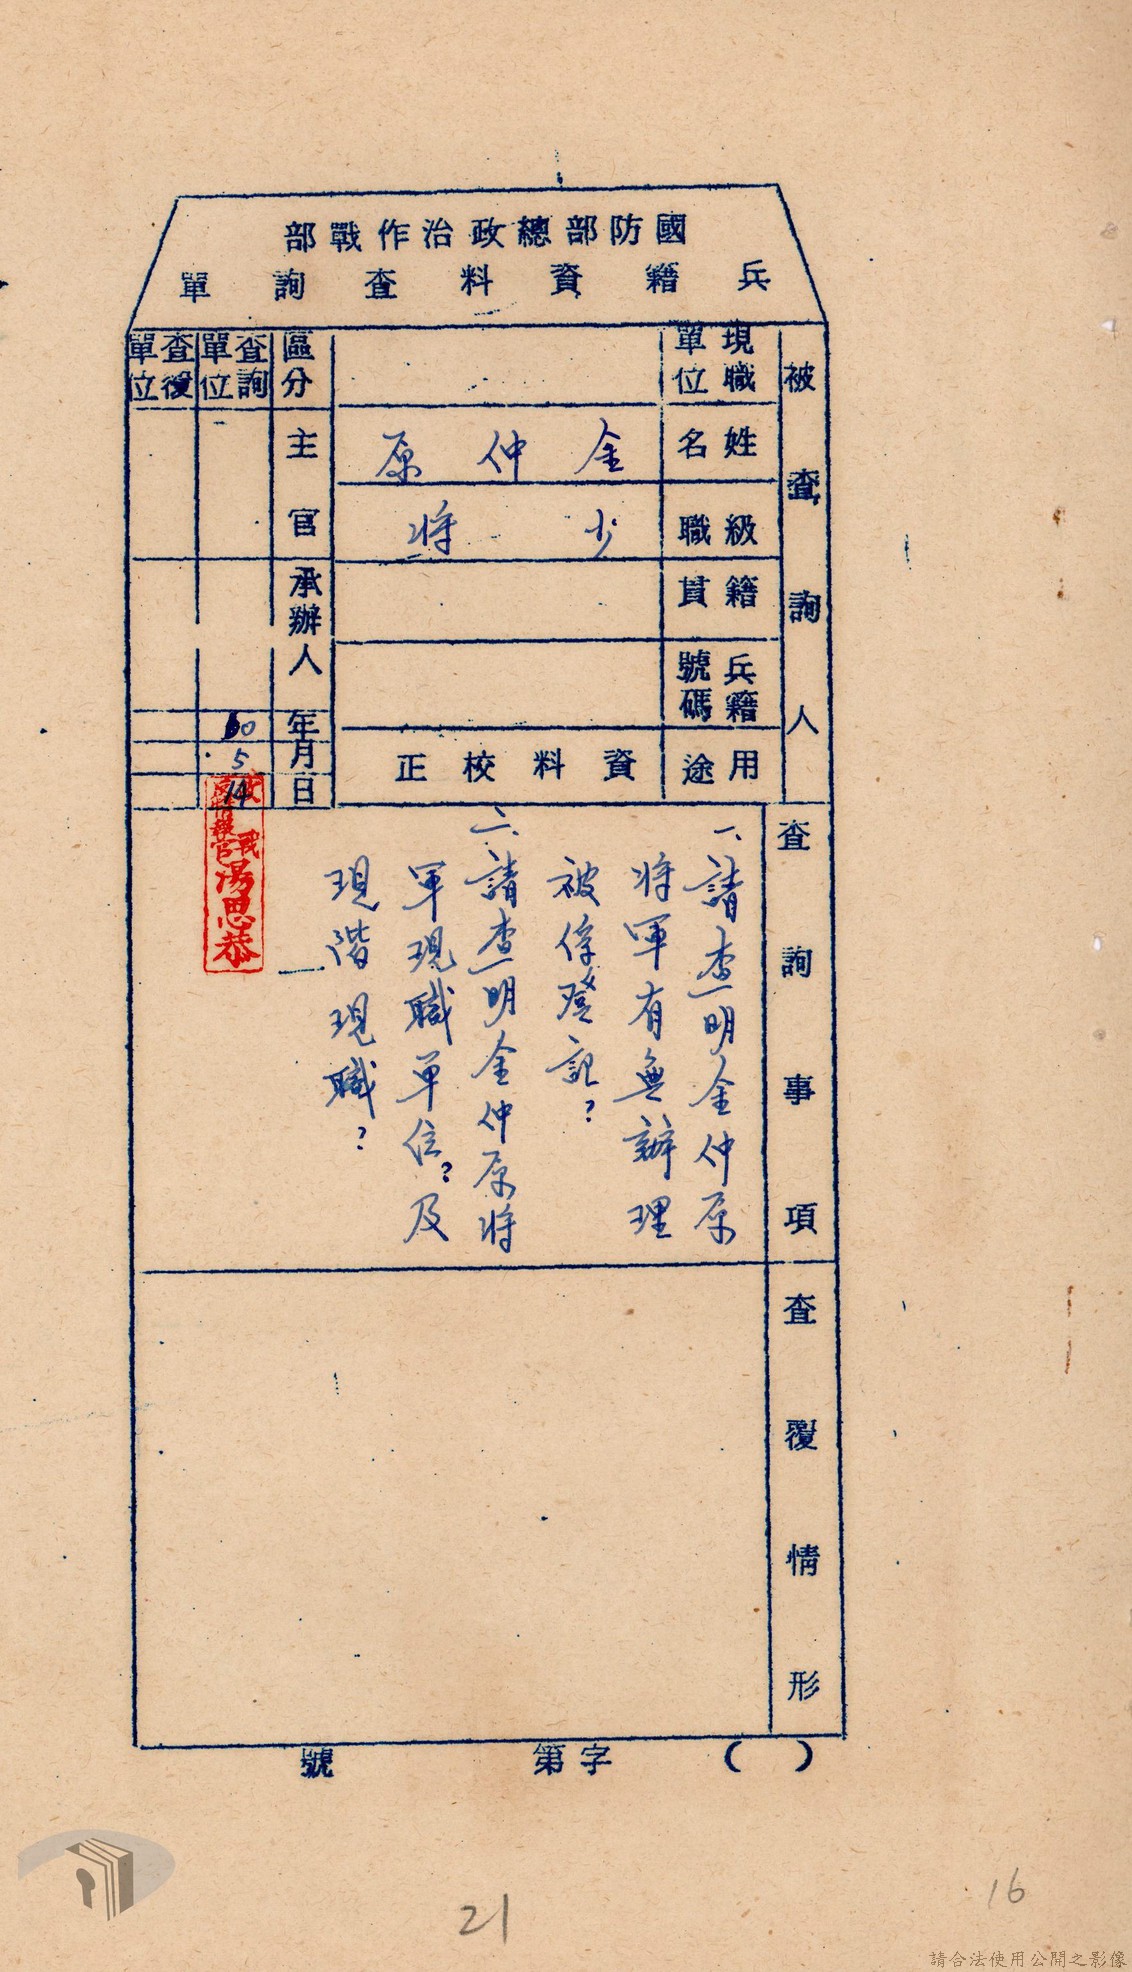 國防部總政治作戰部
兵籍資料查詢單
被查詢人
現職單位
姓名 金仲原
級職 少將
籍貫
兵籍號碼
用途 資料校正
區分 主官 承辦人 年月日
查詢單位 60 5 14
查復單位
查詢事項
一、請查明金仲原
將軍有無辦理
被俘登記?
二、請查明金仲原將
軍現職單位?及
現階現職?
湯思恭
查覆情形
( )字第 號
21
16
請合法使用公開之影像